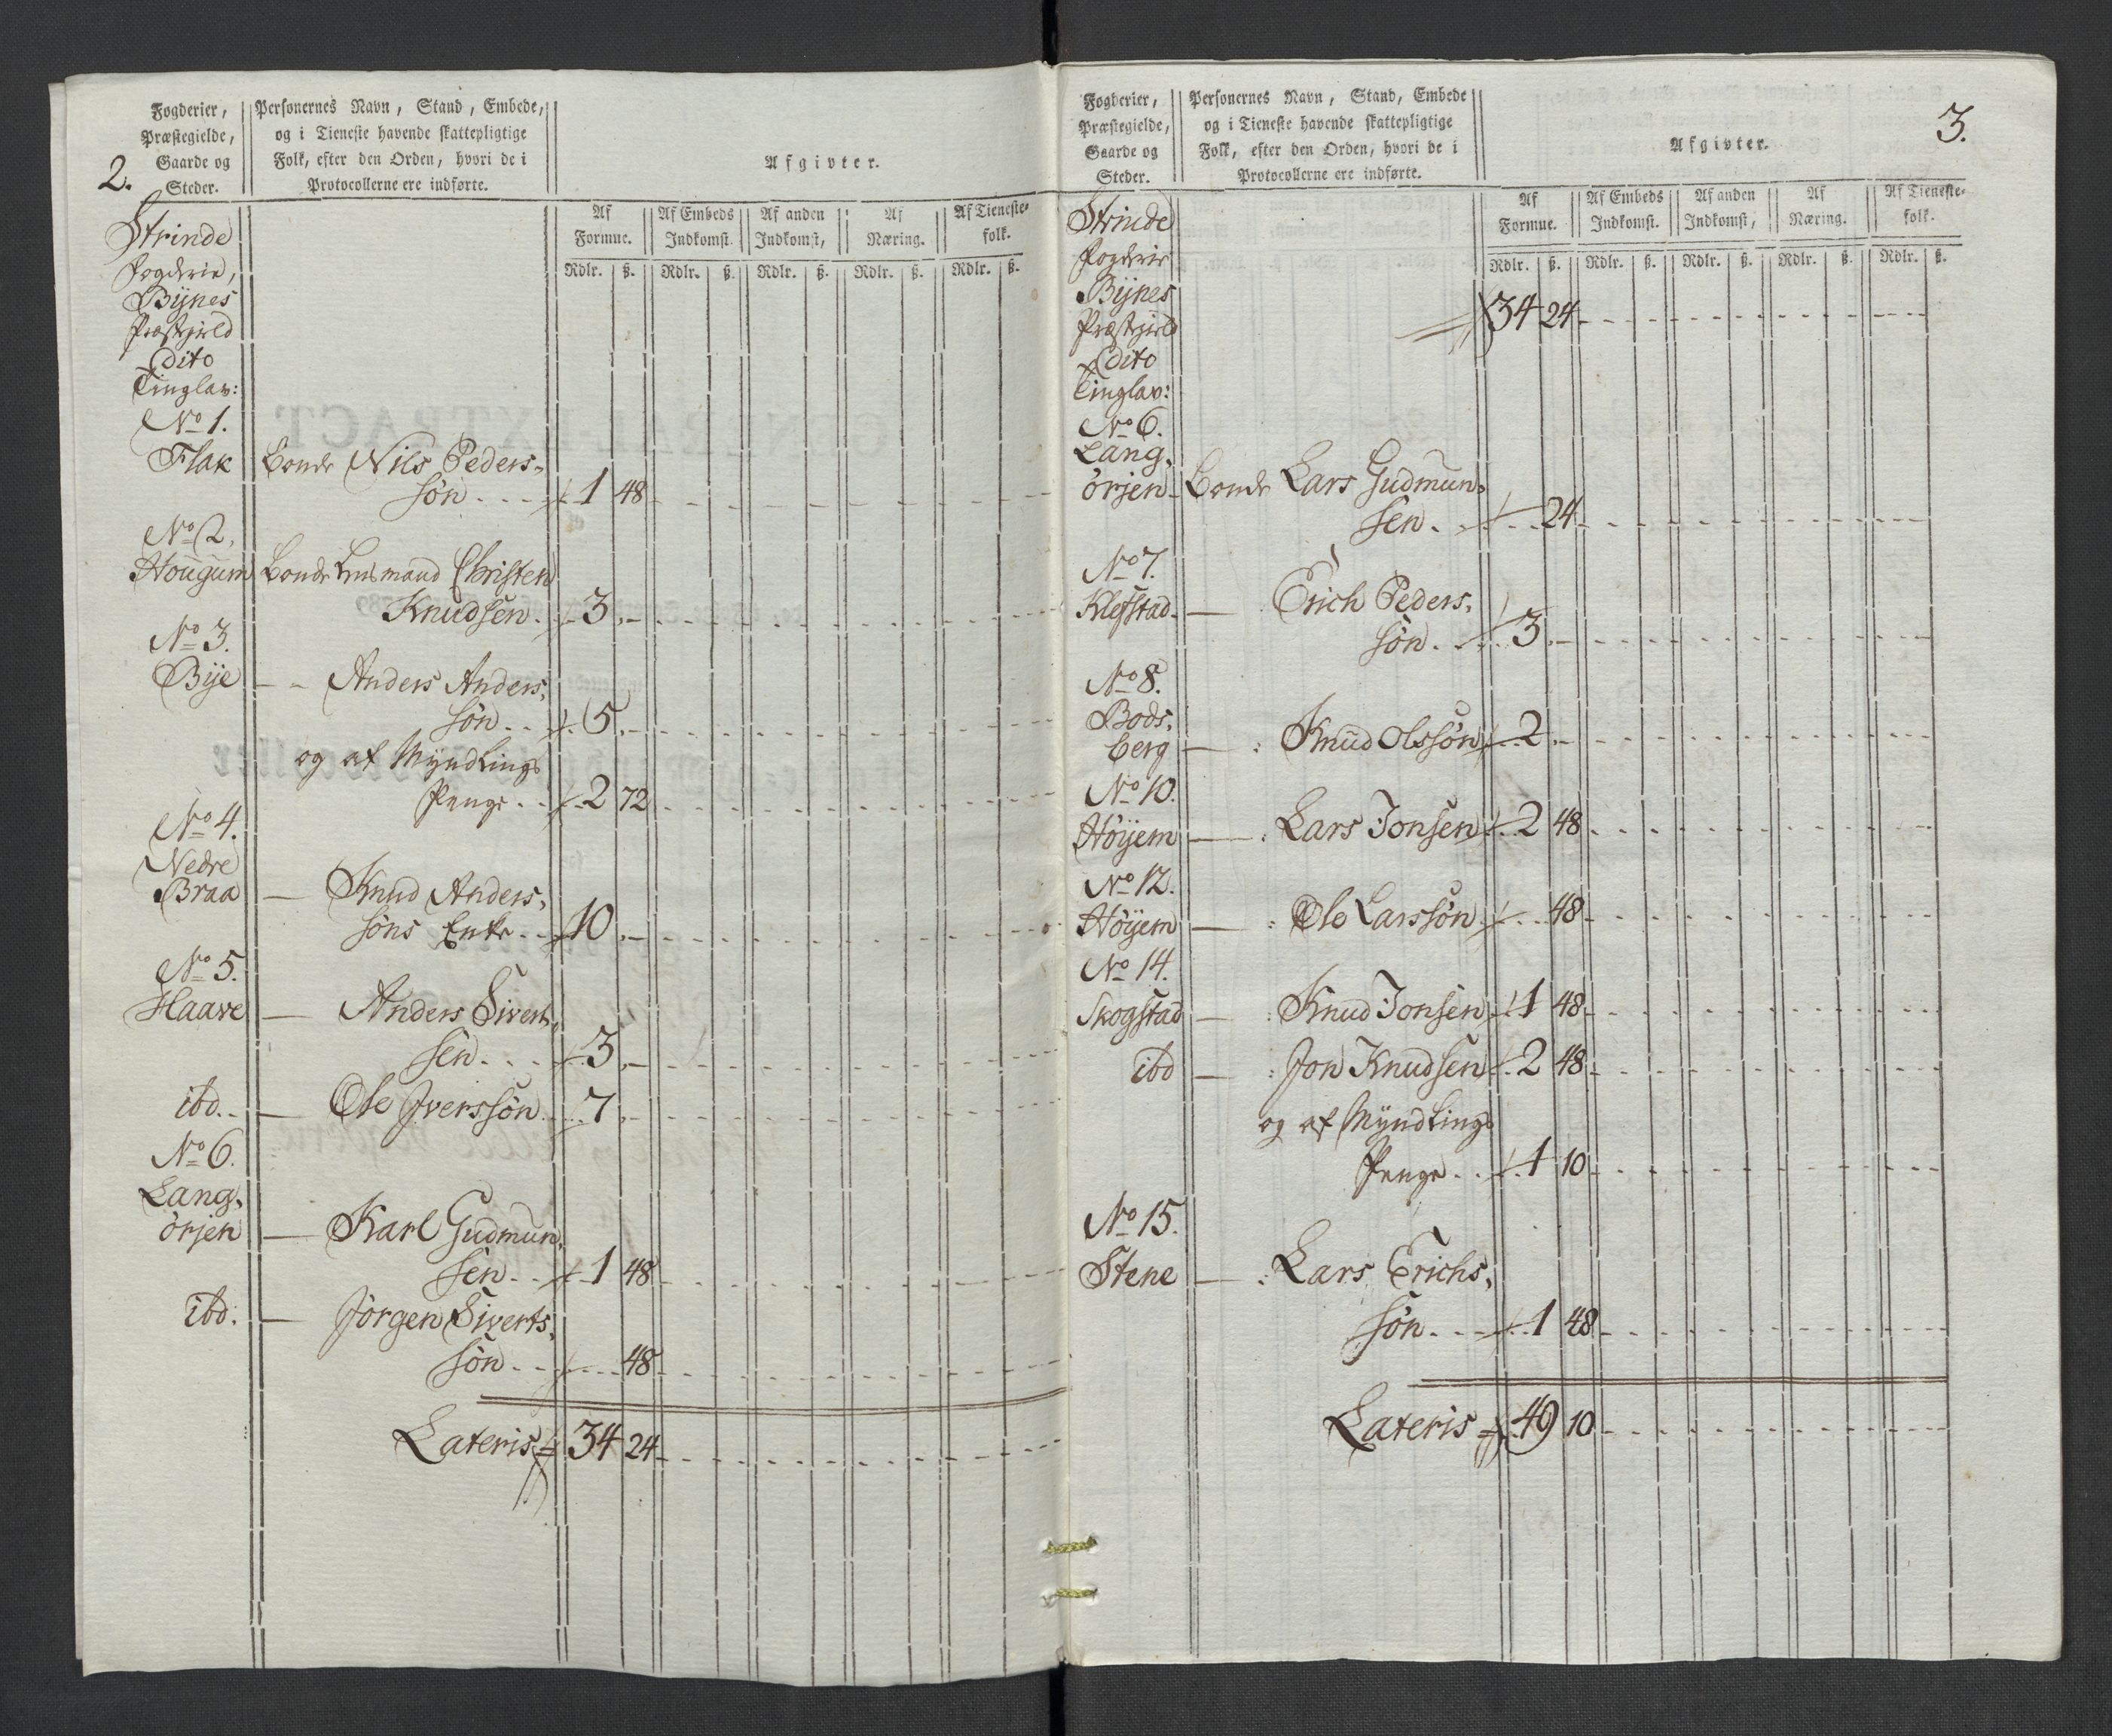 2.
Fogderier, Præstegielde, Gaarde og Steder.
Personernes Navn, Stand, Embede, og i Tieneste havende skattepligtige Folk, efter den Orden, hvori de i Protocollerne ere indførte.
Afgivter.
Af Formue. Af Embeds Indkomst. Af anden Indkomst, Af Næring. Af Tieneste-folk.
Rdlr. ß. Rdlr. ß. Rdlr. ß. Rdlr. ß. Rdlr. ß.
Strinde
Fogderie,
Bÿnes
Præstgield
Dito
Tinglav:
No 1.
Flak Bonde Nils Peders-
søn 1 48
No 2.
Hougum Bonde Lensmand Christen
Knudsen 3 -
No 3.
Bÿe - - Anders Anders,
søn 5 -
og af Myndlings
Penge 2 72
No 4.
Nedre
Braa - Knud Anders,
søns Enke 10 -
No 5.
Haave - Anders Siverts,
sen 3 -
ibd. - Ole Iverssøn 7 -
No 6.
Lang,
ørjen - Karl Gudmun,
sen 1 48
ibd: - Jørgen Siverts,
søn 48
Lateris 34 24
3.
Fogderier, Præstegielde, Gaarde og Steder.
Personernes Navn, Stand, Embede og i Tieneste havende skattepligtige Folk, efter den Orden, hvori de i Protocollerne ere indførte.
Afgivter.
Af Formue. Af Embeds Indkomst. Af anden Indkomst, Af Næring. Af Tieneste-folk.
Rdlr. ß. Rdlr. ß. Rdlr. ß. Rdlr. ß. Rdlr. ß.
Strinde
Fogderie
Bÿnes
Præstgield
Dito
Tinglav:
34 24
No 6.
Lang,
ørjen - Bonde Lars Gudmun,
sen 24
No 7.
Klefstad - Erich Peders,
søn 3 -
No 8.
Bods,
berg - : Knud Olssøn 2 -
No 10.
Høÿem - : Lars Jonsen 2 48
No 12.
Høÿem - : Ole Larssøn 48
No 14.
Skogstad - : Knud Jonsen 1 48
ibd - : Jon Knudsen 2 48
og af Myndlings
Penge 1 10
No 15.
Stene - : Lars Erichs,
søn 1 48
Lateris 49 10